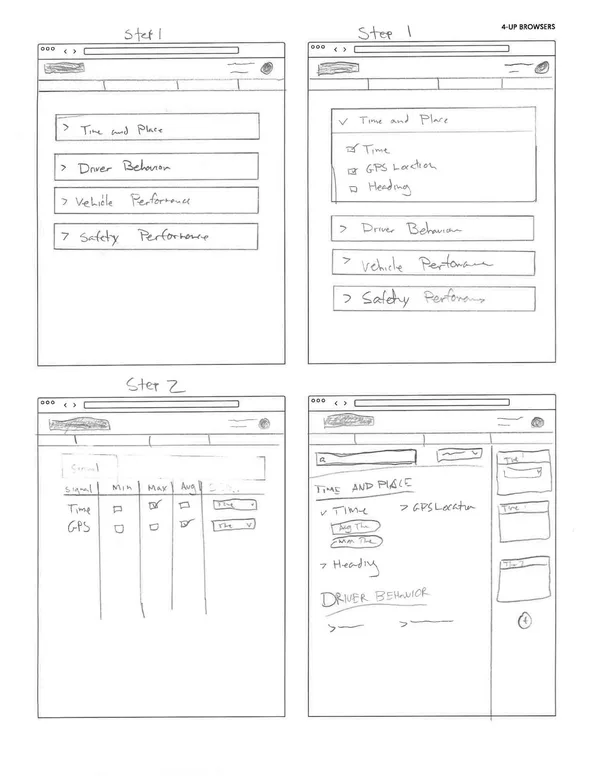 4-UP BROWSERS
Step 1
> Time and Place
> Driver Behavior
> Vehicle Performance
> Safety Performance
Step 1
Time and Place
Time
GPS Location
Heading
> Driver Behavior
> Vehicle Performance
> Safety Performance
Step 2
Signal
Signal Min Max Avg
Time Time
GPS Time
TIME AND PLACE
TIME > GPS Location
Avg Time
> Heading
DRIVER BEHAVIOR